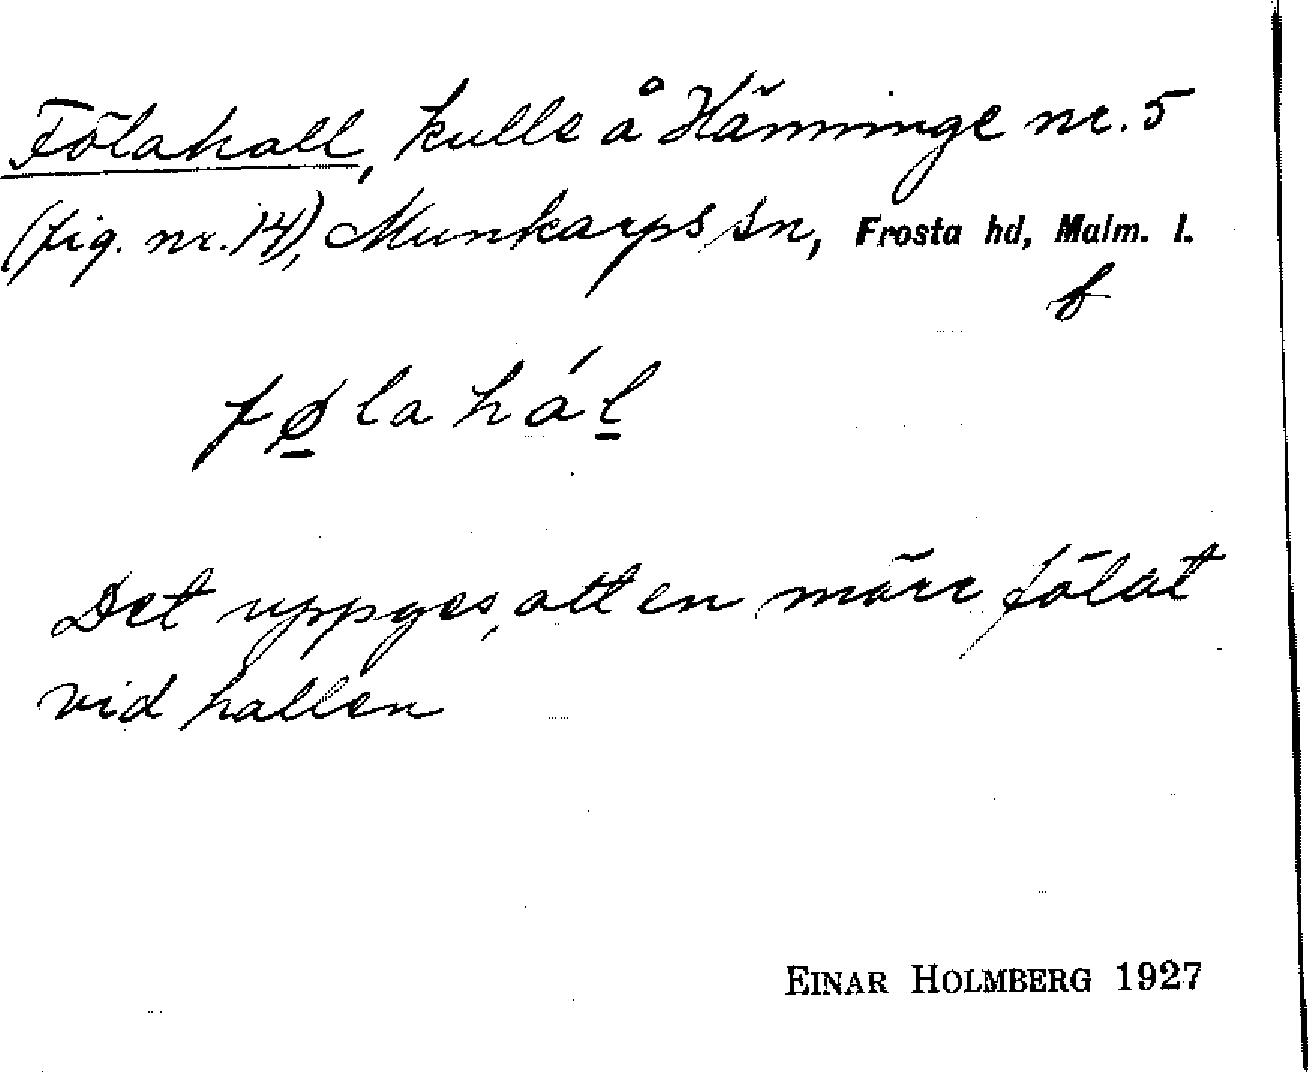 Fölahall, kulle å Hänninge nr. 5
(fig. nr. 14), Munkarps sn, Frosta hd, Malm. l.
b
fø̱la háḻ
Det uppges, att en märr fölat
vid hallen
EINAR HOLMBERG 1927